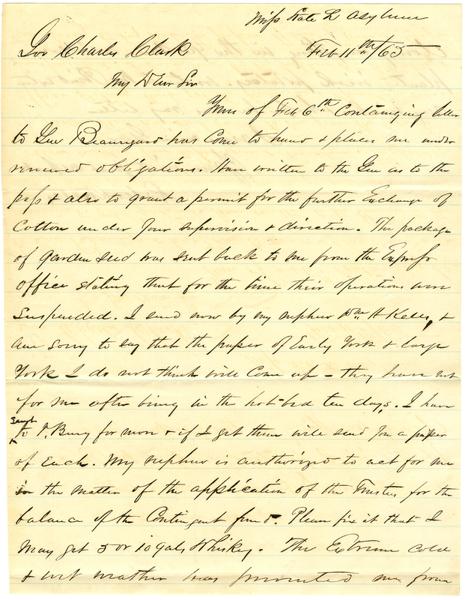 Miss State L Asylum
Feb 11th /65
Gov Charles Clark
My Dear Sir
Yours of Feb 6th Containing letter
to Gen Beauregard has Come to hand & places me under
renewed obligations. Have written to the Gen as to the
pass & also to grant a permit for the further Exchange of
Cotton under your supervision & direction. The package
of Garden seed was sent back to me from the Express
office stating that for the time their operations were
Suspended. I send now by my nephew Wm A Kelly, &
am sorry to say that the paper of Early York & large
York I do not think will Come up - they have not
for me after being in the hot-bed ten days. I have
sent
to P. Bury for more & if I get them will send you a paper
of Each. My nephew is authorized to act for me
in the matter of the application of the Trustees for the
balance of the Contingent fund. Please fix it that I
may get 5 or 10 gals Whiskey. The Extreme cold
& wet weather has prevented me from